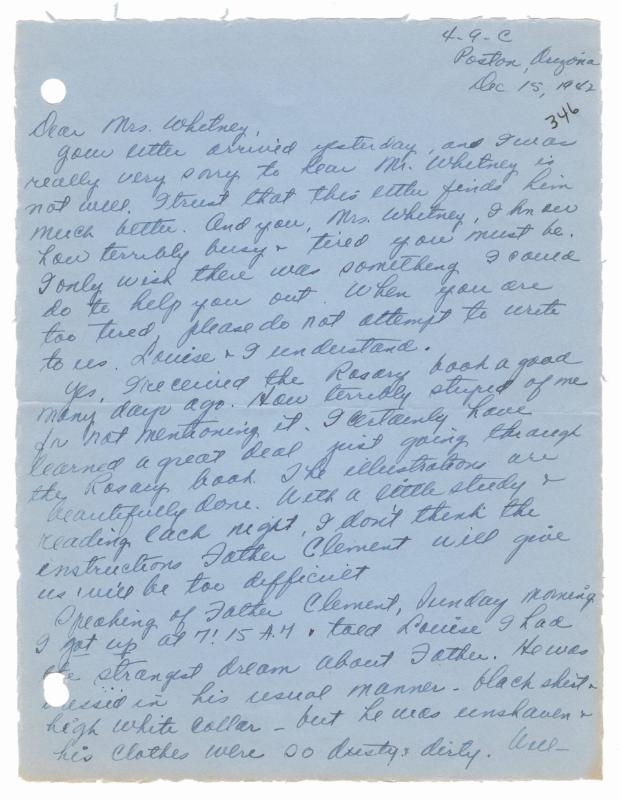 4-9-C
Poston, Arizona
Dec 15, 1942
346
Dear Mrs. Whitney,
Your letter arrived yesterday, and I was
really very sorry to hear Mr. Whitney is
not well. I trust that this letter finds him
much better. And you, Mrs. Whitney, I know
how terribly busy & tired you must be.
I only wish there was something I could
do to help you out. When you are
too tired, please do not attempt to write
to us. Louise & I understand.
Yes, I received the Rosary book a good
many days ago. How terribly stupid of me
for not mentioning it. I certainly have
learned a great deal just going through
the Rosary book. The illustrations are
beautifully done. With a little study &
reading each night, I don't think the
instructions Father Clement will give
us will be too difficult
Speaking of Father Clement, Sunday morning
I got up at 7:15 A.M & told Louise I had
the strangest dream about Father. He was
dressed in his usual manner - black shirt &
high white collar - but he was unshaven &
his clothes were so dusty & dirty. Well-